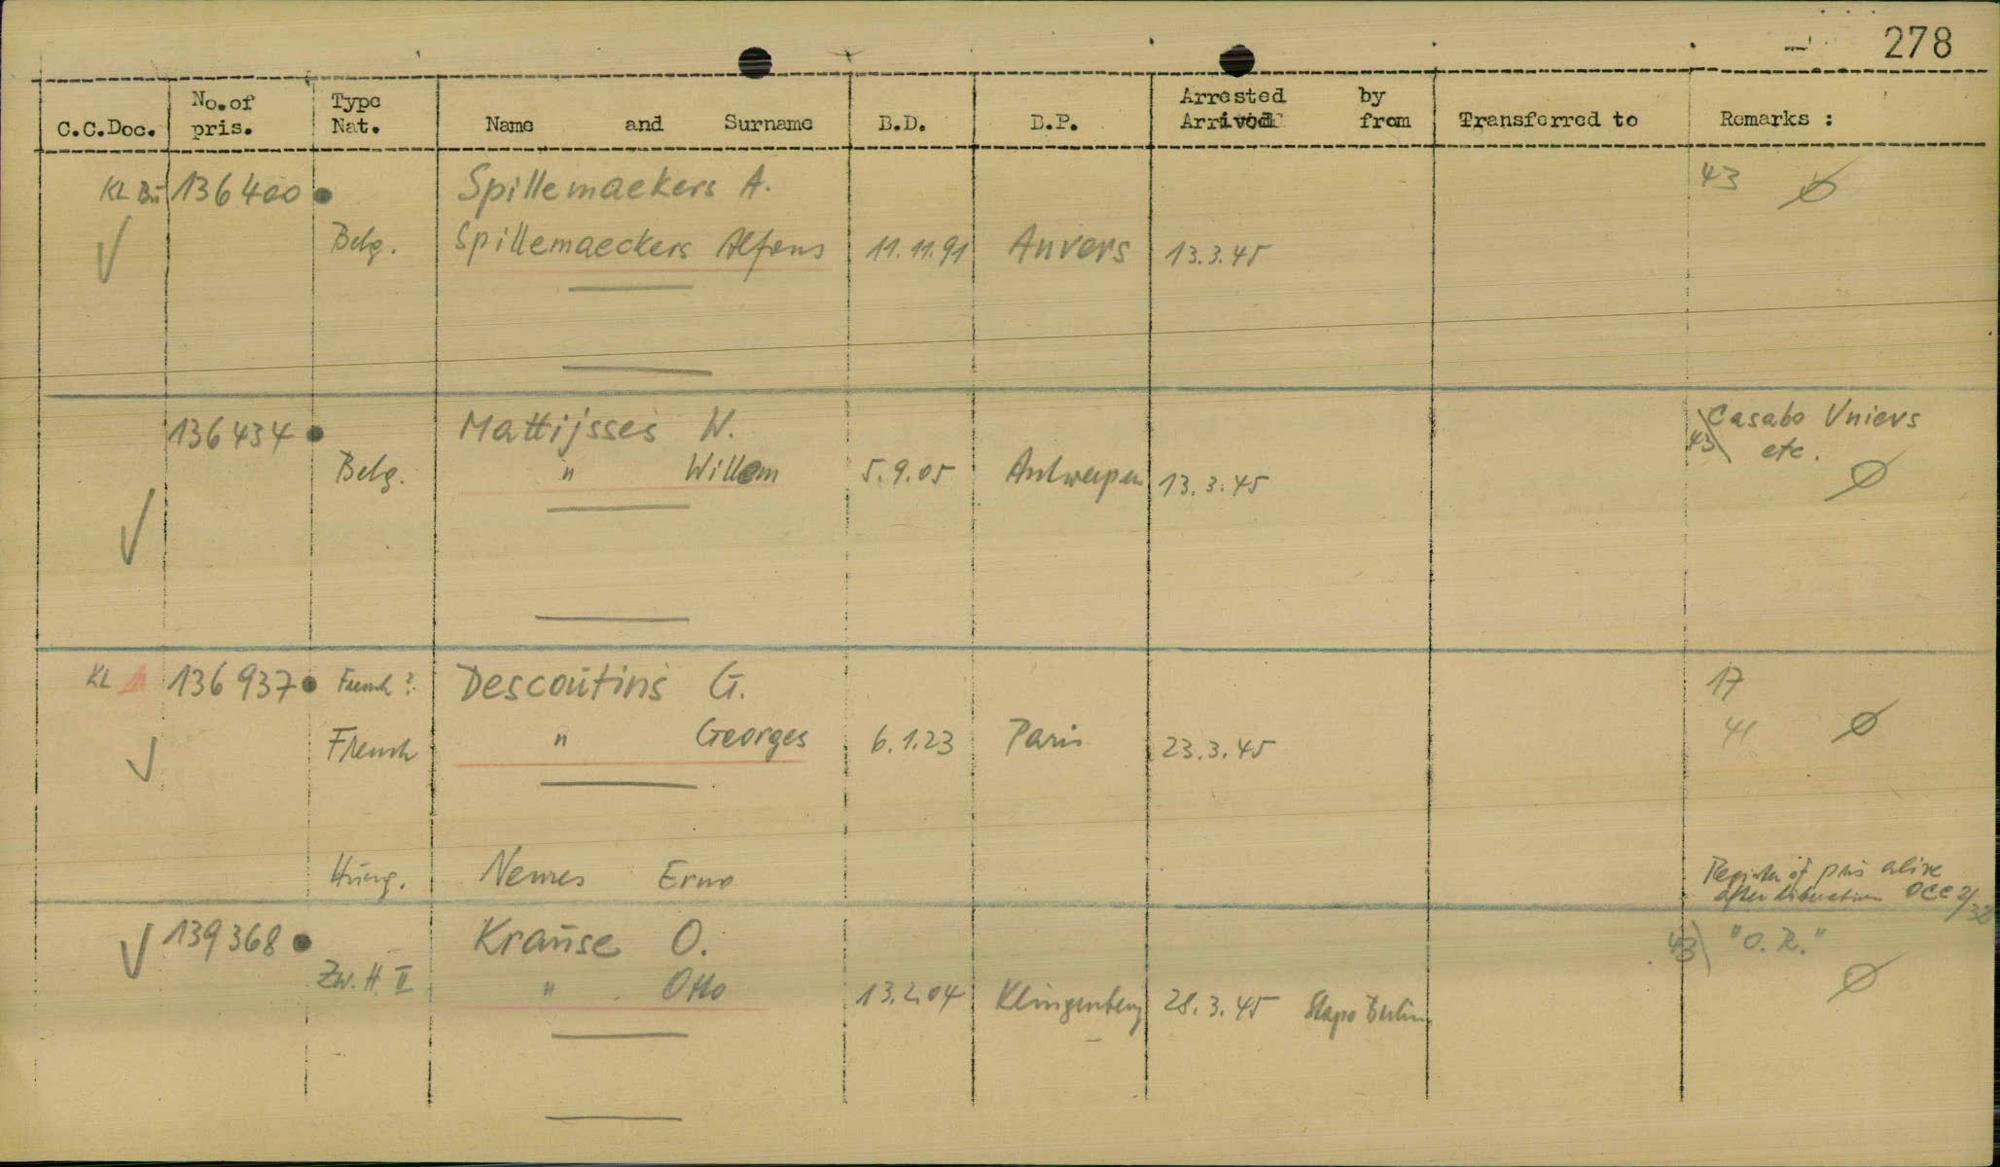 278
C.C.Doc. No. of pris. Type Nat. Name and Surname B.D. B.P. Arrested by Arrived from Transferred to Remarks :
KL Bu 136400 Spillemaekers A. 43 ø
Belg. Spillemaeckers Alfons 11.11.91 Anvers 13.3.45
136434 Mattijsses W. 43 Casabo Vniers
etc.
Belg. " Willem 5.9.05 Antwerpen 13.3.45 ø
KL 136937 French? Descoutins G. 17
French " Georges 6.1.23 Paris 23.3.45 41 ø
Hung. Nemes Erno Register of pris alive
after liberation OCC 2/32
139368 Krause O. 43 "O.R."
Zw. H. II " Otto 13.2.04 Klingenberg 28.3.45 Stapo Berlin ø